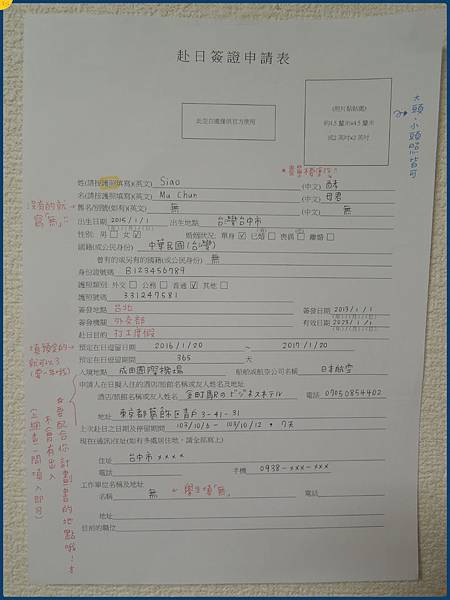 赴日簽證申請表
此空白處僅供官方使用
(照片黏貼處)
約4.5 釐米x4.5 釐米
或2 英吋x2 英吋
大頭、小頭照皆可
姓(請按護照填寫)(英文) Siao (中文)
名(請按護照填寫)(英文) Mu Chun (中文) 母君
沒有的就寫「無」
舊名/別號(如有)(英文) 無 (中文) 無
出生日期 2015/1/1 出生地點 台灣台中市
(年)/(月)/(日)
性別: 男 女 婚姻狀況: 單身 已婚 喪偶 離婚
國籍(或公民身份) 中華民國(台灣)
曾有的或另有的國籍(或公民身份) 無
身份證號碼 B123456789
護照種類: 外交 公務 普通 其他
護照號碼 331247581
簽發地點 台北 簽發日期 2013/1/1
(年)/(月)/(日)
簽發機關 外交部 有效日期 2023/1/1
(年)/(月)/(日)
赴日目的 打工度假
填預定的就可以了
預定在日逗留日期 2016/1/20 ~ 2017/1/20
預定在日逗留期間 365 天
入境地點 成田國際機場 船舶或航空公司名稱 日本航空
申請人在日擬入住的酒店/旅館名稱或友人姓名及地址
酒店/旅館名稱或友人姓名 金町駅のビジネスホテル 電話 07050854402
地址 東京都葛飾区青戸3-41-31
上次赴日日期及停留期間 103/10/6 ~ 103/10/12 , 7天
現在日通訊住址(如有多處居住地，請全部寫上)
住址 台中市xxxx
電話 手機 0938-xxx-xxx
工作單位名稱及地址
名稱 無 ← 學生填「無」 電話
地址
目前的職位
要配合你計劃書的地點哦!
不會有出入
(上網查一間填入即可)